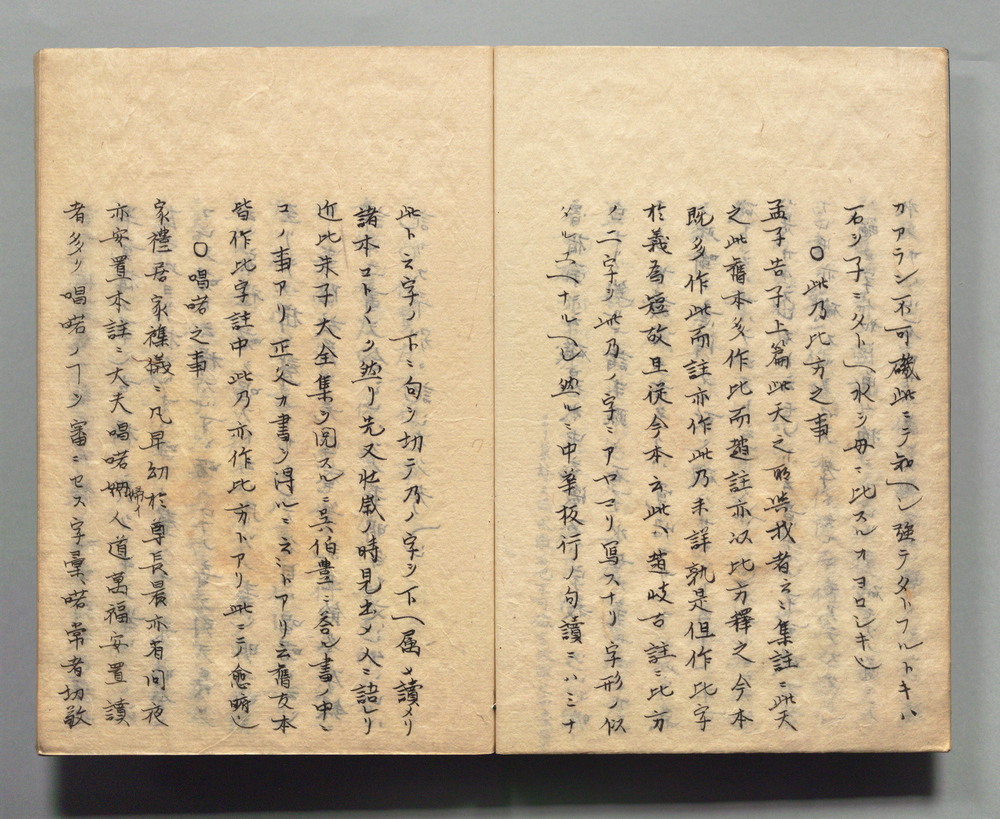 カアラン不可磯此ニテ知ヘシ強テタトフルトキハ
石ヲ子ニタトヘ水ヲ母ニ比スルカヨロシキ也
〇此乃比方之事
孟子告子上篇此天之所與我者云々集註ニ此天
之此舊本多作比而趙註亦以比方釋之今本
既多作此而註亦作此乃未詳孰是但作比字
於義為短故且從今本云此ハ趙岐古註ニ比方
ノ二字ヲ此乃ノ字ニアヤマリ寫スナリ字形ノ似
タルユヘナルヘシ然ルニ中華板行ノ句讀ニハミナ
此ト云字ノ下ニ句ヲ切テ乃ノ字ヲ下ヘ属メ讀メリ
諸本コトノク然リ先又壮歳ノ時見出メ人ニ語レリ
近比朱子大全集ヲ閲スルニ呉伯豊ニ答ル書ノ中ニ
コノ事アリ正父カ書ヲ得ルニ云ヽトアリ云舊友本
皆作比字註中此乃亦作比方トアリ此ニテ愈明也
〇唱喏之事
家禮居家雜儀ニ凡卑幼於尊長晨亦省問夜
亦安置本註ニ大夫唱喏婦人道萬福安置讀
者多ク唱喏ノ丁ヲ審ニセス字彙喏常者切敬